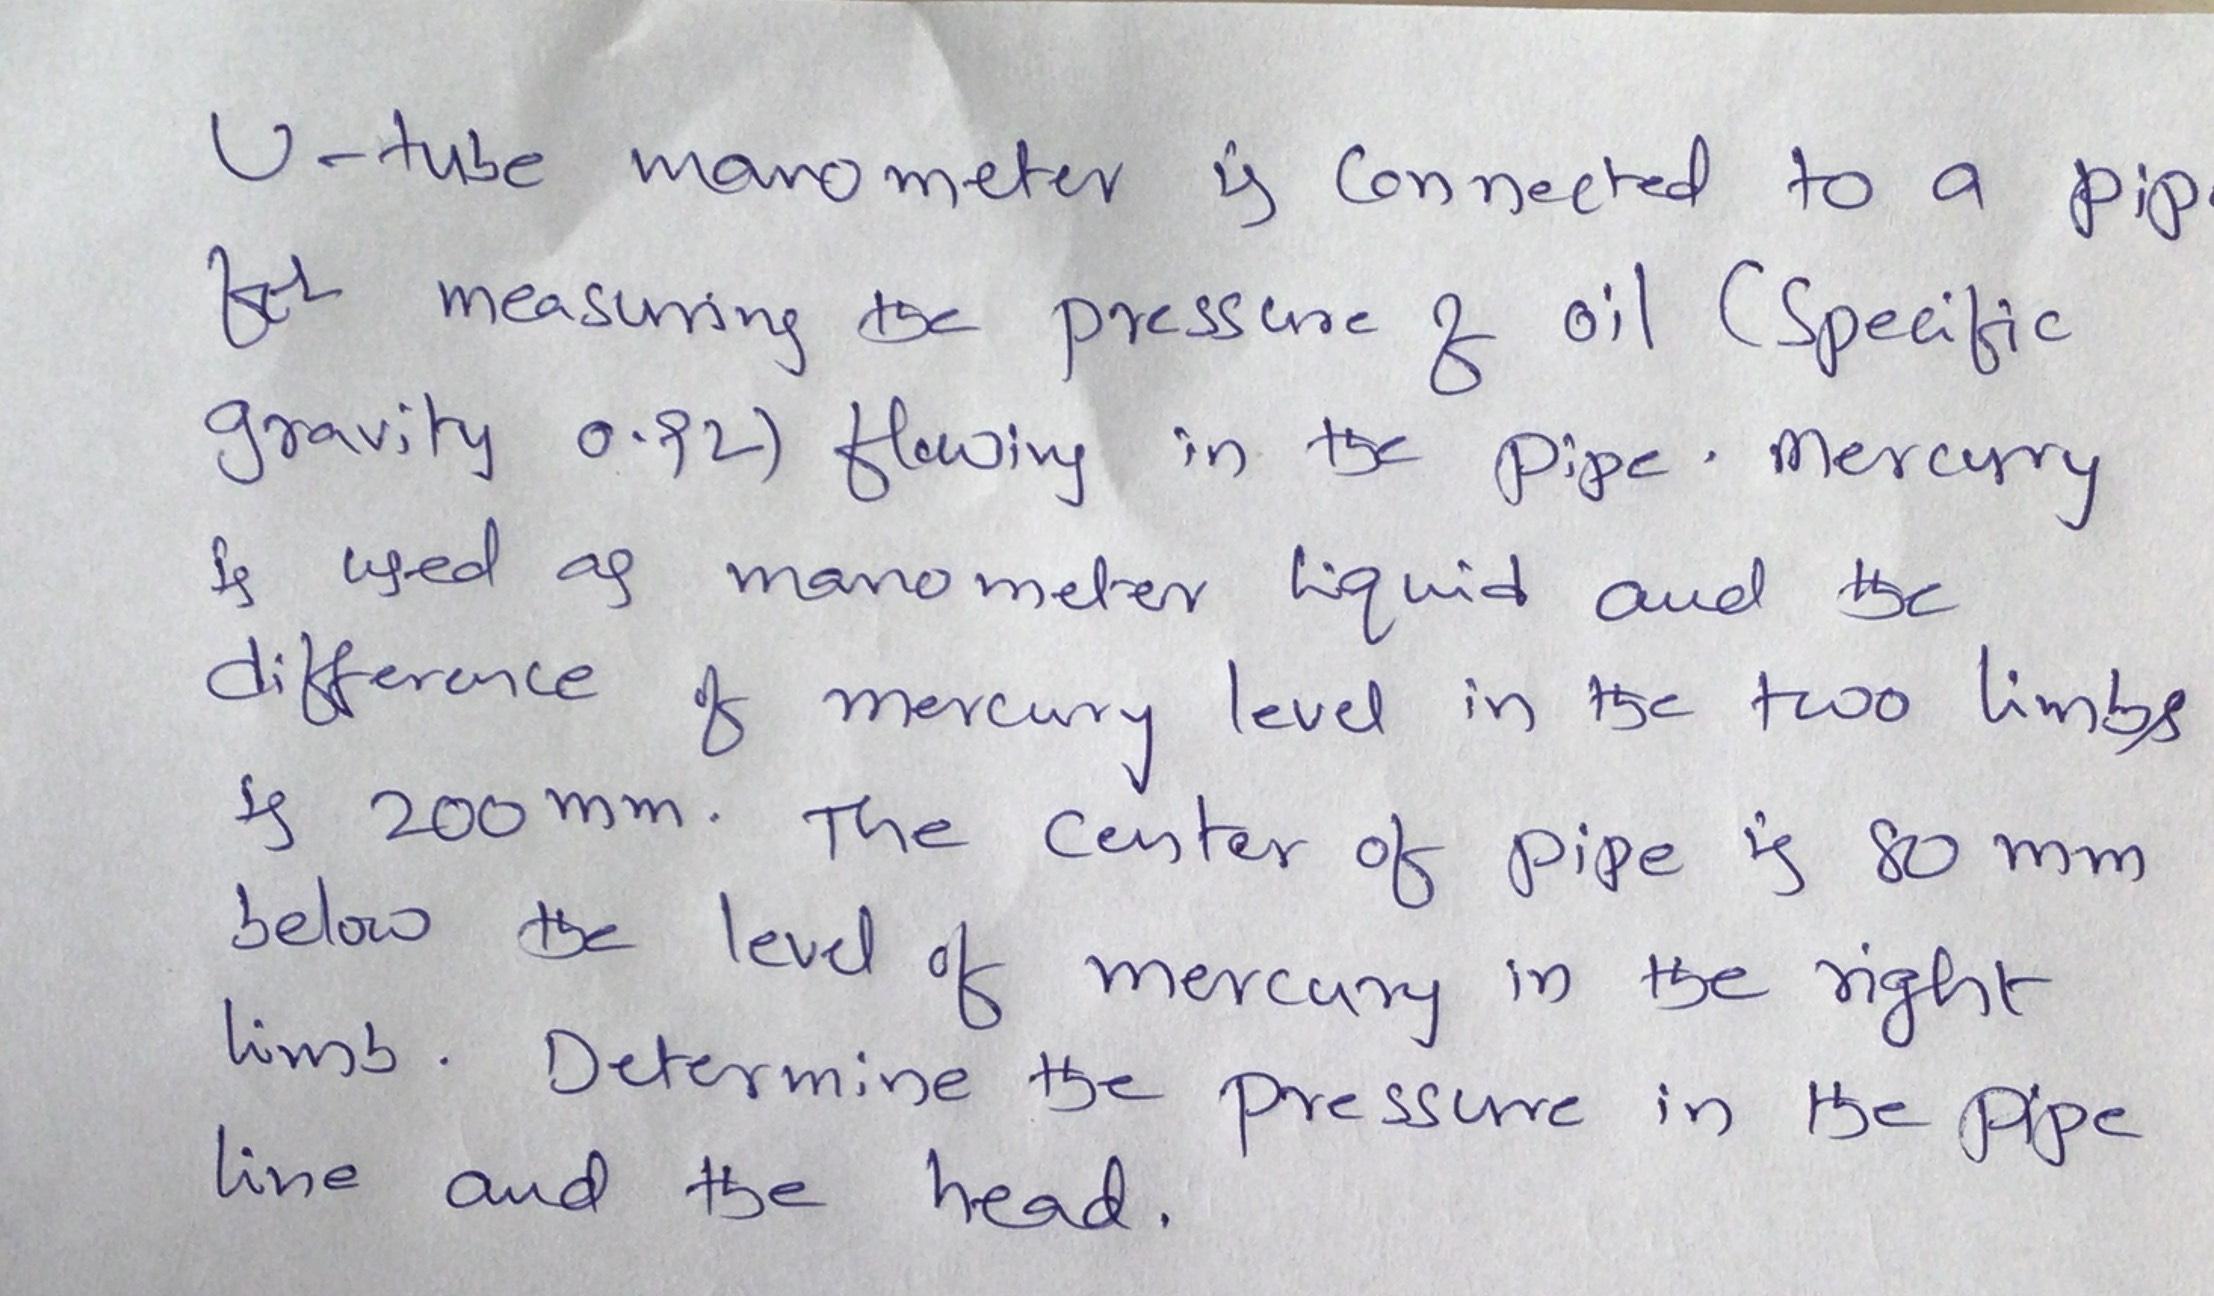 U-tube manometer is connected to a pipe
for measuring the pressure of oil (Specific
gravity 0.92) flowing in the pipe. Mercury
is used as manometer liquid and the
difference of mercury level in the two limbs
is 200 mm. The center of pipe is 80 mm
below the level of mercury in the right
limb. Determine the pressure in the pipe
line and the head.